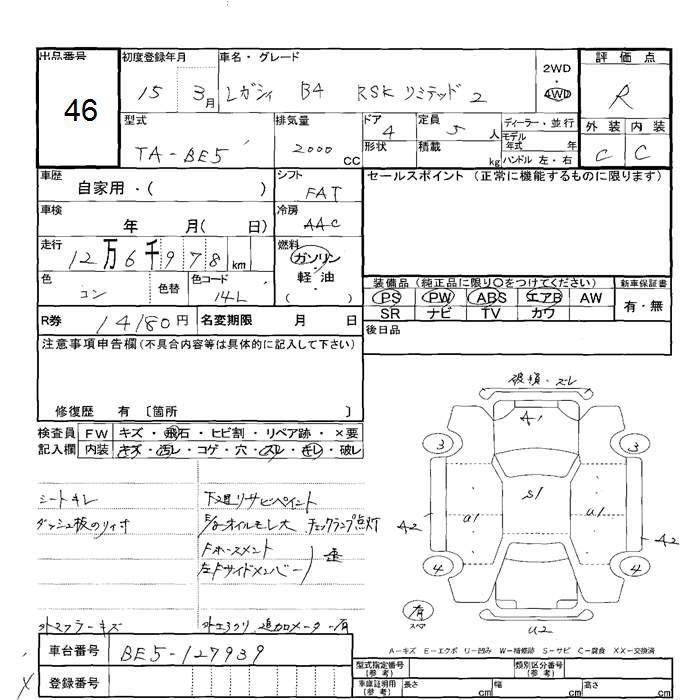 出品番号
46
初度登録年月
15 3月
車名・グレード
レガシィ B4 RSK リミテッド2
2WD
4WD
評価点
R
外装 内装
C C
型式
TA-BE5
排気量
2000 CC
ドア
4
形状
定員
5 人
積載
kg
ディーラー・並行
モデル年式 年
ハンドル 左・右
車歴
自家用・( )
シフト
FAT
セールスポイント (正常に機能するものに限ります)
車検
年 月( 日)
冷房
AAC
走行
12万6千978km
燃料
ガソリン
軽・油
( )
色
コン
色替
色コード
14L
装備品 (純正品に限り○をつけてください)
PS PW ABS エアB AW
SR ナビ TV カワ
新車保証書
有・無
R券
14180円
名変期限 月 日
後日品
注意事項申告欄(不具合内容等は具体的に記入して下さい)
修復歴 有 〔箇所 〕
検査員
記入欄
FW キズ・飛石・ヒビ割・リペア跡・×要
内装 キズ・汚レ・コゲ・穴・スレ・キレ・破レ
シートキレ
下廻リサビペイント
E/gオイルモレ大 チェックランプ点灯
左Fサイドメンバー
外マフラーキズ
追加メーター有
破損・ズレ
A1
3 3
S1
a1 a1
A2 A2
4 4
有
スペア
U2
A-キズ E-エクボ U-凹み W-補修跡 S-サビ C-腐食 XX-交換済
車台番号
BE5-127939
登録番号
型式指定番号
(参考)
類別区分番号
(参考)
車庫証明用
(参考)
長さ cm 幅 cm 高さ cm